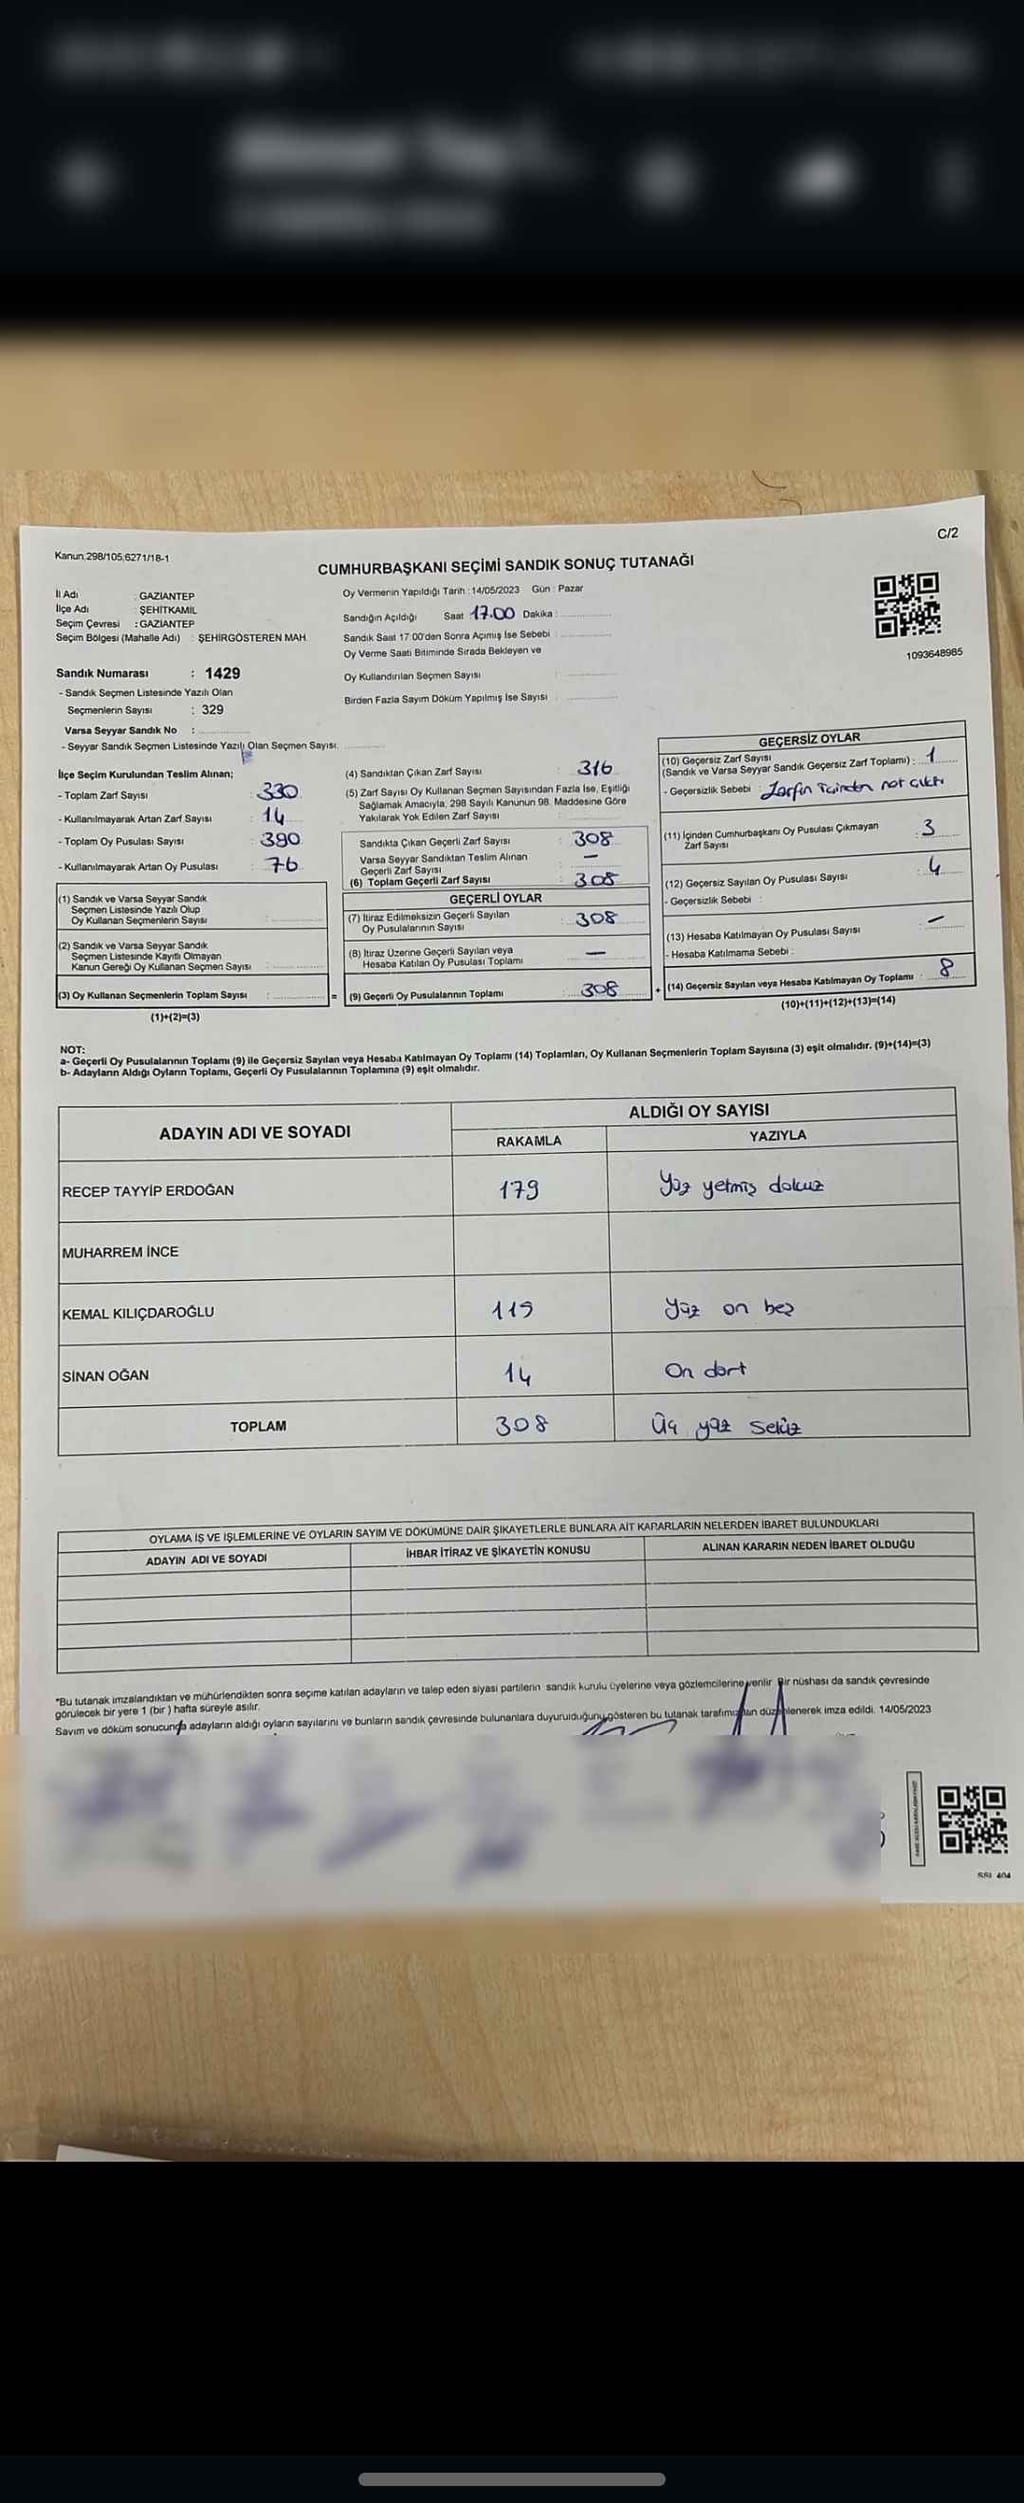 C/2
Kanun,298/105,6271/18-1
CUMHURBAŞKANI SEÇİMİ SANDIK SONUÇ TUTANAĞI
İl Adı : GAZİANTEP
İlçe Adı : ŞEHİTKAMİL
Seçim Çevresi : GAZİANTEP
Seçim Bölgesi (Mahalle Adı) : ŞEHİRGÖSTEREN MAH.
Sandık Numarası : 1429
- Sandık Seçmen Listesinde Yazılı Olan
Seçmenlerin Sayısı : 329
Varsa Seyyar Sandık No :
- Seyyar Sandık Seçmen Listesinde Yazılı Olan Seçmen Sayısı:
Oy Vermenin Yapıldığı Tarih : 14/05/2023 Gün : Pazar
Sandığın Açıldığı Saat 17.00 Dakika :
Sandık Saat 17:00'den Sonra Açımış İse Sebebi :
Oy Verme Saati Bitiminde Sırada Bekleyen ve
Oy Kullandırılan Seçmen Sayısı :
Birden Fazla Sayım Döküm Yapılmış İse Sayısı :
1093648985
İlçe Seçim Kurulundan Teslim Alınan;
- Toplam Zarf Sayısı : 330
- Kullanılmayarak Artan Zarf Sayısı : 14
- Toplam Oy Pusulası Sayısı : 390
- Kullanılmayarak Artan Oy Pusulası : 76
(1) Sandık ve Varsa Seyyar Sandık
Seçmen Listesinde Yazılı Olup
Oy Kullanan Seçmenlerin Sayısı :
(2) Sandık ve Varsa Seyyar Sandık
Seçmen Listesinde Kayıtlı Olmayan
Kanun Gereği Oy Kullanan Seçmen Sayısı :
(3) Oy Kullanan Seçmenlerin Toplam Sayısı : =
(1)+(2)=(3)
(4) Sandıktan Çıkan Zarf Sayısı : 316
(5) Zarf Sayısı Oy Kullanan Seçmen Sayısından Fazla İse, Eşitliği
Sağlamak Amacıyla, 298 Sayılı Kanunun 98. Maddesine Göre
Yakılarak Yok Edilen Zarf Sayısı :
Sandıkta Çıkan Geçerli Zarf Sayısı : 308
Varsa Seyyar Sandıktan Teslim Alınan
Geçerli Zarf Sayısı : —
(6) Toplam Geçerli Zarf Sayısı : 308
GEÇERLİ OYLAR
(7) İtiraz Edilmeksizin Geçerli Sayılan
Oy Pusulalarının Sayısı : 308
(8) İtiraz Üzerine Geçerli Sayılan veya
Hesaba Katılan Oy Pusulası Toplamı : —
(9) Geçerli Oy Pusulalarının Toplamı : 308 +
GEÇERSİZ OYLAR
(10) Geçersiz Zarf Sayısı
(Sandık ve Varsa Seyyar Sandık Geçersiz Zarf Toplamı) : 1
- Geçersizlik Sebebi : Zarfın içinden not çıktı
(11) İçinden Cumhurbaşkanı Oy Pusulası Çıkmayan
Zarf Sayısı : 3
(12) Geçersiz Sayılan Oy Pusulası Sayısı : 4
- Geçersizlik Sebebi :
(13) Hesaba Katılmayan Oy Pusulası Sayısı : —
- Hesaba Katılmama Sebebi :
(14) Geçersiz Sayılan veya Hesaba Katılmayan Oy Toplamı : 8
(10)+(11)+(12)+(13)=(14)
NOT:
a- Geçerli Oy Pusulalarının Toplamı (9) ile Geçersiz Sayılan veya Hesaba Katılmayan Oy Toplamı (14) Toplamları, Oy Kullanan Seçmenlerin Toplam Sayısına (3) eşit olmalıdır. (9)+(14)=(3)
b- Adayların Aldığı Oyların Toplamı, Geçerli Oy Pusulalarının Toplamına (9) eşit olmalıdır.
ADAYIN ADI VE SOYADI
ALDIĞI OY SAYISI
RAKAMLA YAZIYLA
RECEP TAYYİP ERDOĞAN 179 Yüz yetmiş dokuz
MUHARREM İNCE
KEMAL KILIÇDAROĞLU 115 Yüz on beş
SİNAN OĞAN 14 On dört
TOPLAM 308 Üç yüz sekiz
OYLAMA İŞ VE İŞLEMLERİNE VE OYLARIN SAYIM VE DÖKÜMÜNE DAİR ŞİKAYETLERLE BUNLARA AİT KARARLARIN NELERDEN İBARET BULUNDUKLARI
ADAYIN ADI VE SOYADI İHBAR İTİRAZ VE ŞİKAYETİN KONUSU ALINAN KARARIN NEDEN İBARET OLDUĞU
*Bu tutanak imzalandıktan ve mühürlendikten sonra seçime katılan adayların ve talep eden siyasi partilerin sandık kurulu üyelerine veya gözlemcilerine verilir. Bir nüshası da sandık çevresinde
görülecek bir yere 1 (bir) hafta süreyle asılır.
Sayım ve döküm sonucunda adayların aldığı oyların sayılarını ve bunların sandık çevresinde bulunanlara duyurulduğunu gösteren bu tutanak tarafımızdan düzenlenerek imza edildi. 14/05/2023